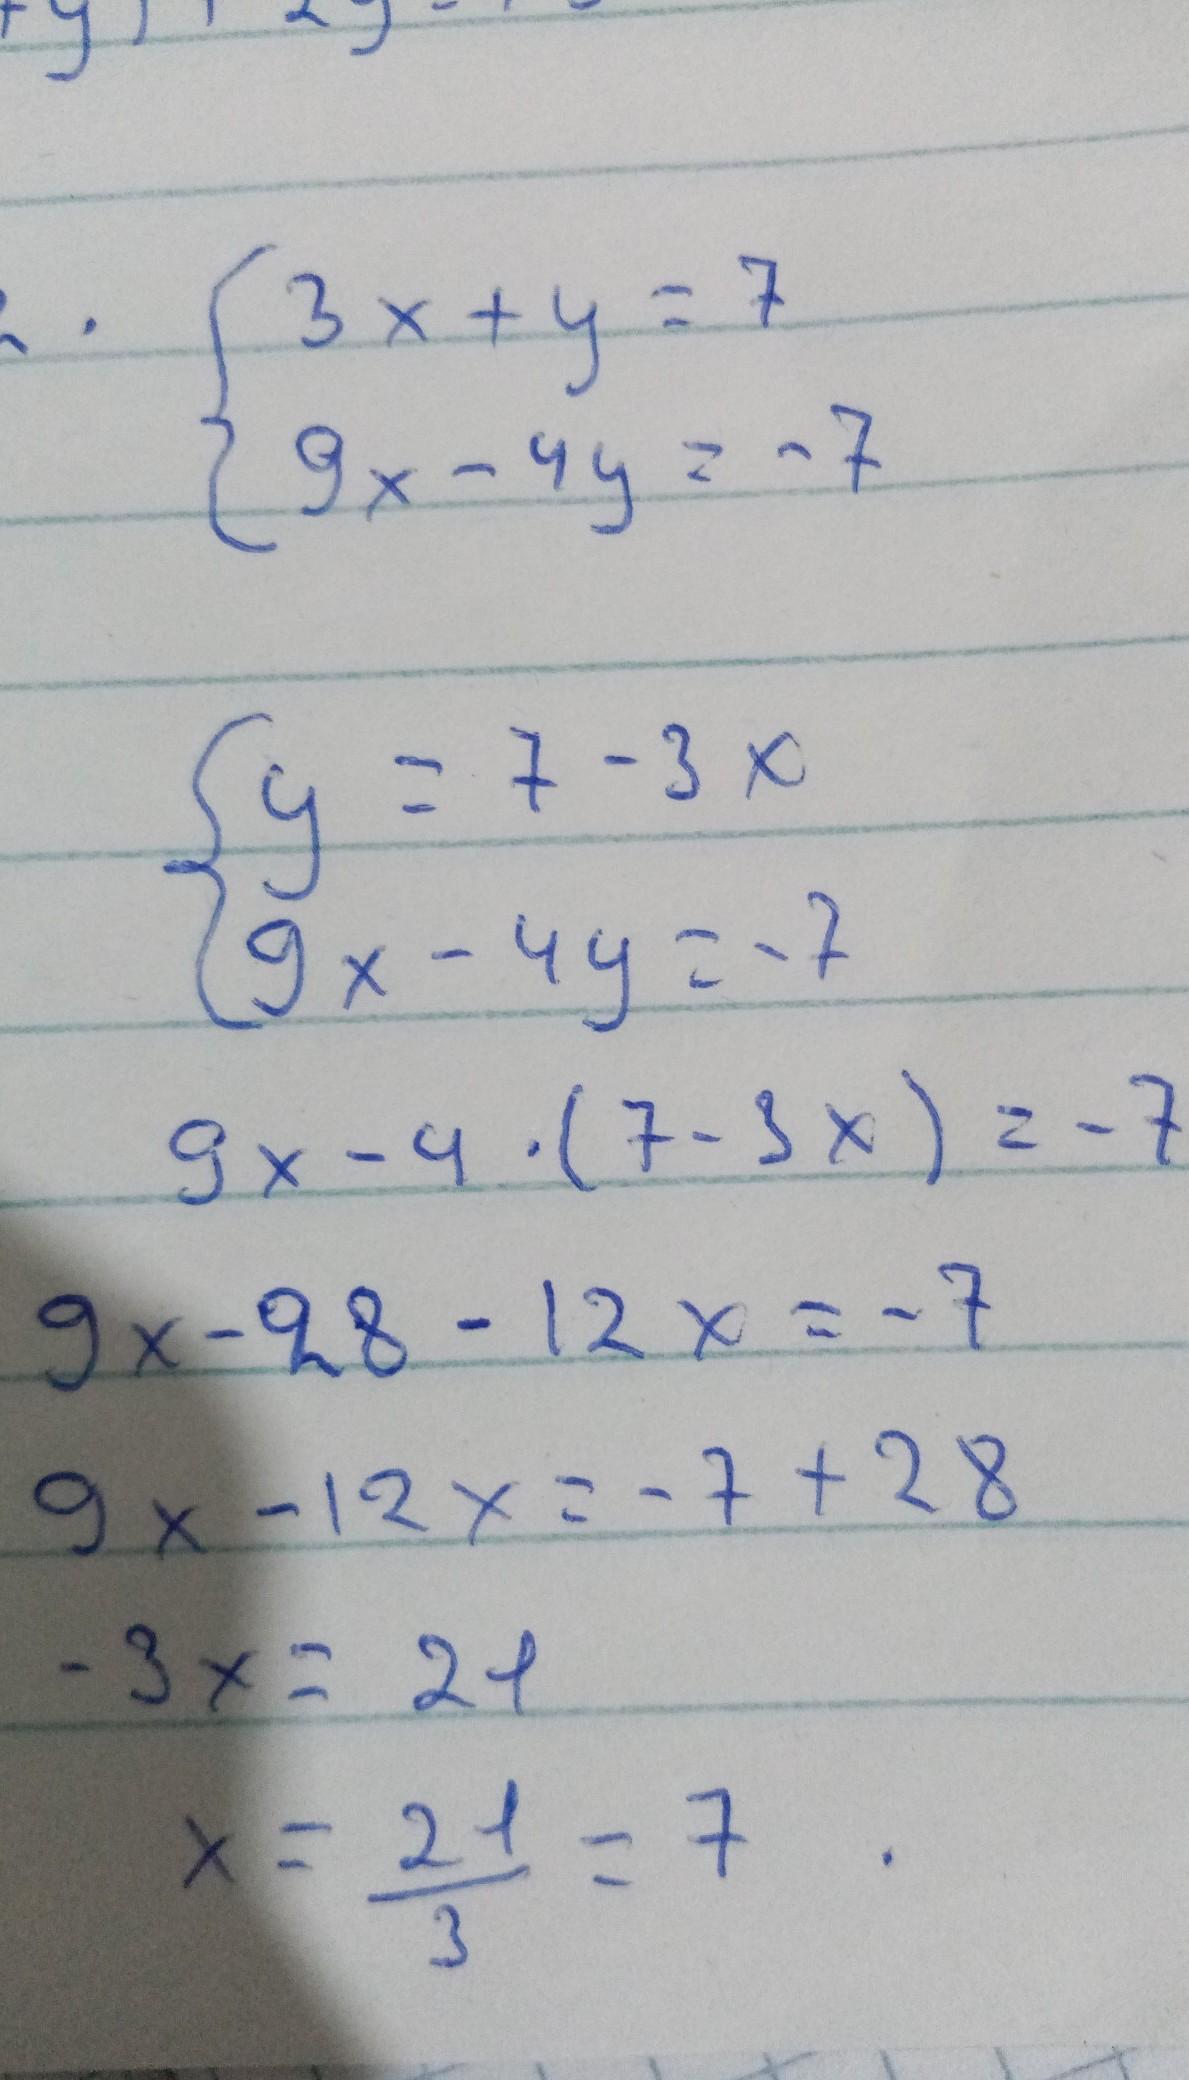 2. 3x + y = 7
9x - 4y = -7
y = 7 - 3x
9x - 4y = -7
9x - 4 · (7 - 3x) = -7
9x - 28 - 12x = -7
9x - 12x = -7 + 28
-3x = 21
x = 21/3 = 7 .